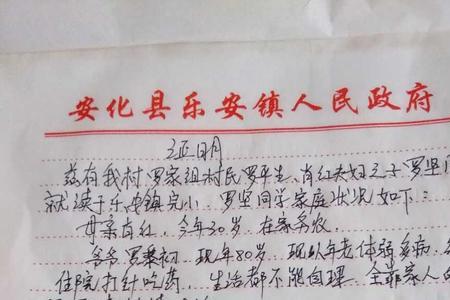 安化县乐安镇人民政府
证明
兹有我村罗家组村民罗平生、肖红夫妇之子罗坚
就读于乐安镇完小、罗坚同学家庭状况如下：
母亲肖红，今年30岁，在家务农。
爷爷罗秉初，现年80岁，现以年老体弱多病，
住院打针吃药，生活都不能自理，全靠家人的